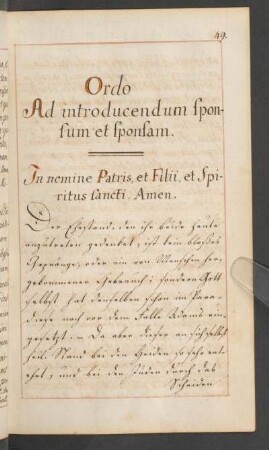 49.
Ordo
Ad introducendum spon-
sum et sponsam.
In nomine Patris, et Filii, et Spi-
ritus sancti. Amen.
Der Ehestand, den ihr beide heute
anzutreten gedenket, ist kein bloßes
Gepränge, oder ein von Menschen her-
gekommener Gebrauch; sondern Gott
selbst hat denselben schon im Para-
diese noch vor dem Falle Adams ein-
gesetzt. – Da aber dieser an sich selbst
heil. Stand bei den Heiden so sehr ent-
ehret, und bei den Juden durch das
Scheiden